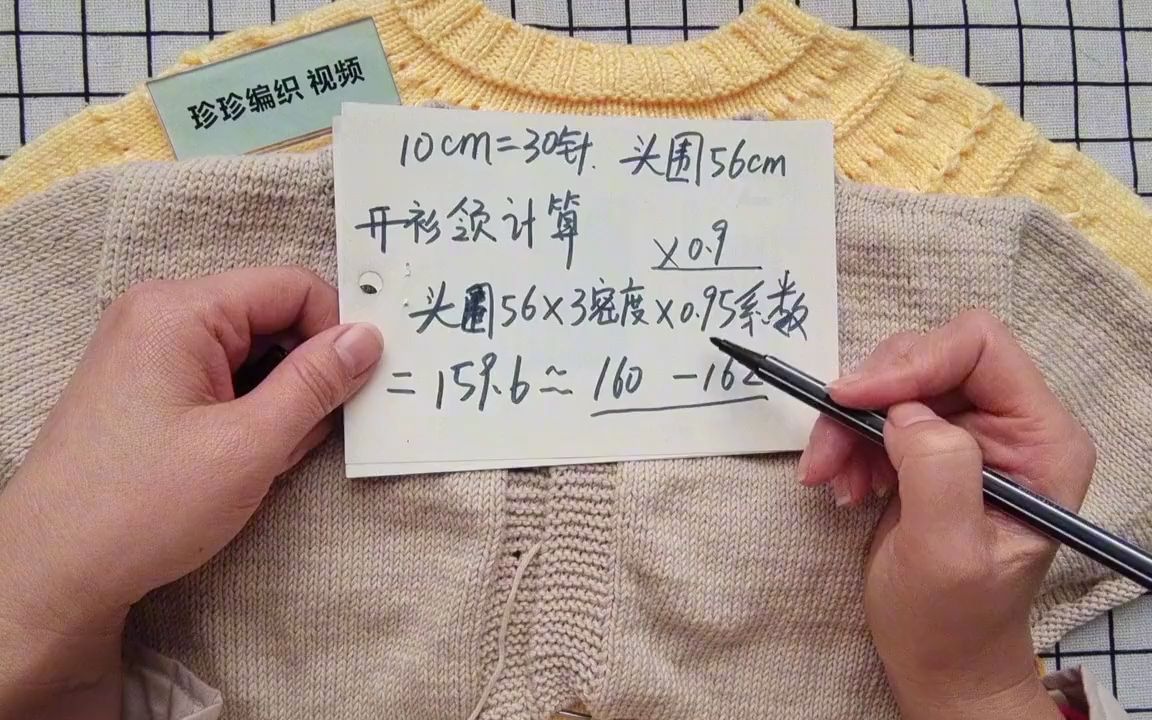 珍珍编织 视频
10cm=30针. 头围56cm
开衫领计算 ×0.9
头围56×3密度×0.95系数
=159.6≈160-162